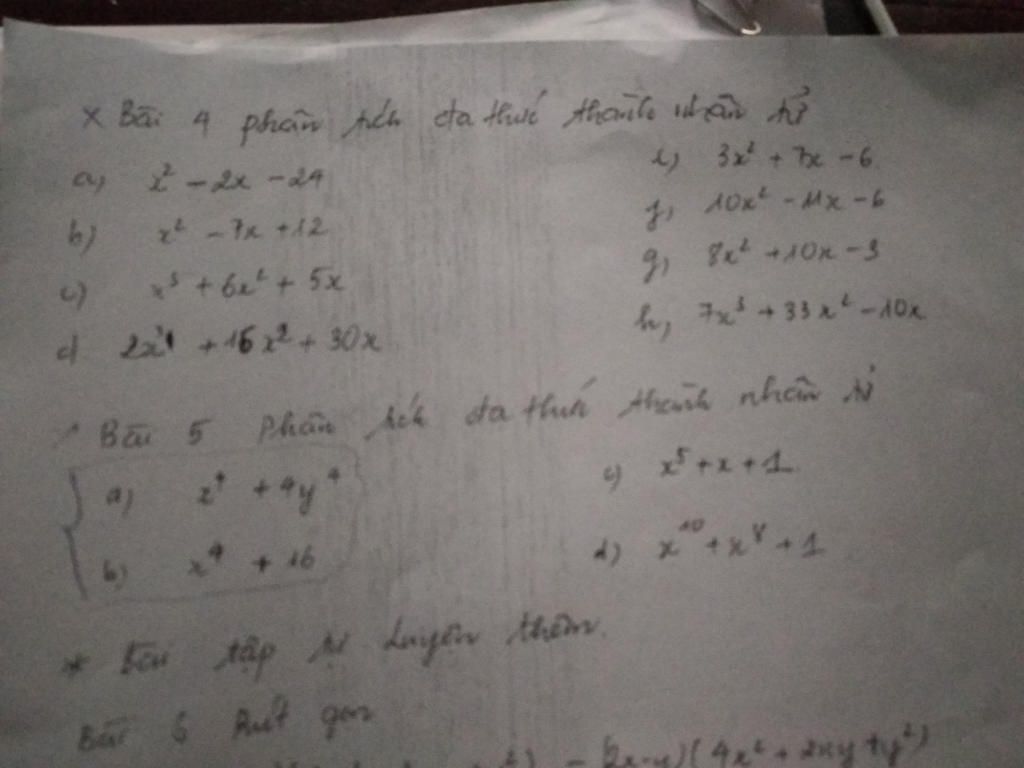 x Bài 4 phân tích đa thức thành nhân tử
a) x² - 2x - 24
b) x² - 7x + 12
c) x³ + 6x² + 5x
d 2x⁴ + 16x² + 30x
e) 3x² + 7x - 6
f, 10x² - 11x - 6
g, 8x² + 10x - 3
h, 7x³ + 33x² - 10x
Bài 5 Phân tích đa thức thành nhân tử
a) x⁴ + 4y⁴
b) x⁴ + 16
c) x⁵ + x + 1
d) x¹⁰ + x⁸ + 1
* Bài tập tự luyện thêm.
Bài 6 Rút gọn
²) - (2x-y)(4x² + 2xy + y²)